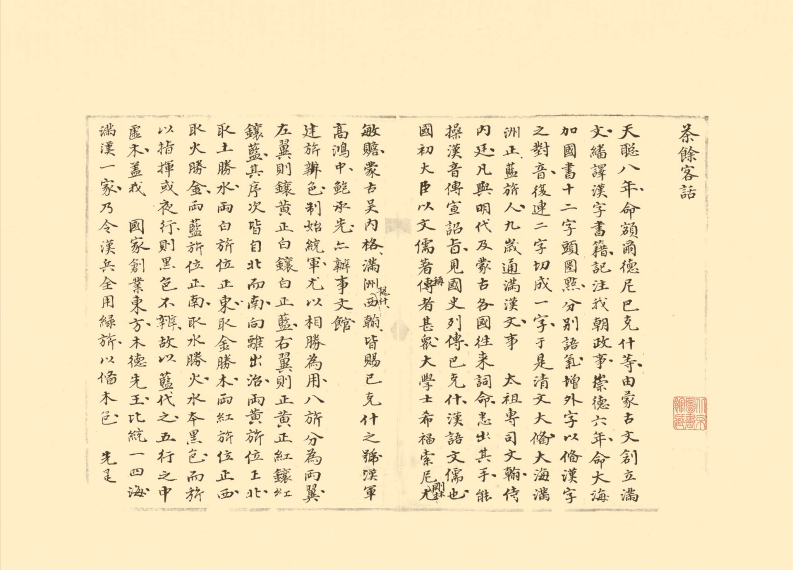 茶餘客話
天聰八年命額爾德尼巴克什等由蒙古文創立滿
文繙譯漢字書籍記注我朝政事崇德六年命大海
加國書十二字頭圈點分別語氣增外字以備漢字
之對音復連二字切成一字于是清文大備大海滿
洲正藍旂人九歲通滿漢文事 太祖專司文翰侍
內廷凡與明代及蒙古各國往來詞命悉出其手能
操漢音傳宣詔旨見國史列傳巴克什漢語文儒也
國初大臣以文儒著傳者甚眾大學士希福索尼尤
敏贍蒙古吴內格滿洲西翰皆賜巴克什之號漢軍
高鴻中鮑承先亦辦事文館
建旂辨色制始統軍尤以相勝為用八旂分為兩翼
左翼則鑲黃正白鑲白正藍右翼則正黃正紅鑲紅
鑲藍其序次皆自北而南向離出治兩黃旂位正北
取土勝水兩白旂位正東取金勝木兩紅旂位正西
取火勝金兩藍旂位正南取水勝火水本黑色而旂
以指揮或夜行則黑色不辨故以藍代之五行之中
虛木蓋我 國家創業東方木德先王比統一四海
滿漢一家乃令漢兵全用綠旂以備木色 先是